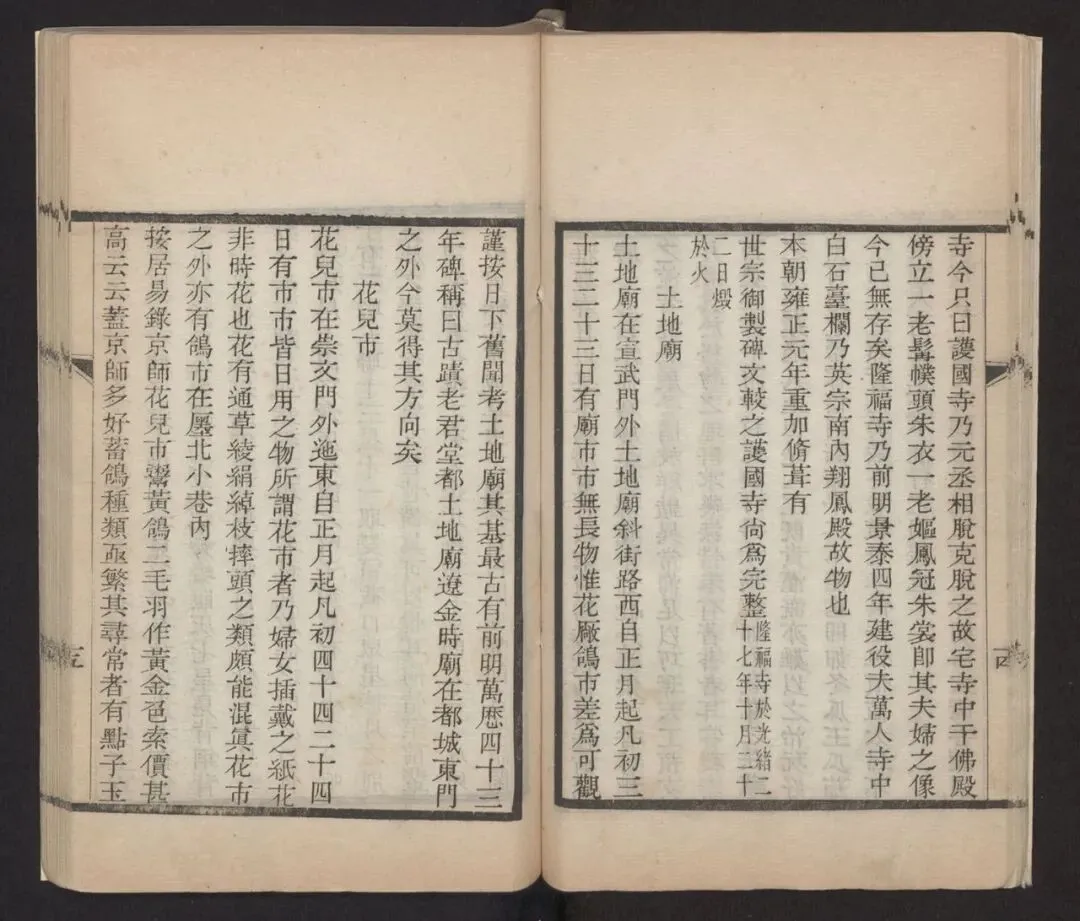 寺今只曰護國寺乃元丞相脫克脫之故宅寺中千佛殿
傍立一老髯幞頭朱衣一老嫗鳳冠朱裳卽其夫婦之像
今已無存矣隆福寺乃前明景泰四年建役夫萬人寺中
白石臺欄乃英宗南內翔鳳殿故物也
本朝雍正元年重加脩葺有
世宗御製碑文較之護國寺尙爲完整隆福寺於光緒二十七年十月二十
二日燬於火
土地廟
土地廟在宣武門外土地廟斜街路西自正月起凡初三
十三二十三日有廟市市無長物惟花厰鴿市差爲可觀
四
謹按日下舊聞考土地廟其基最古有前明萬厯四十三
年碑稱曰古蹟老君堂都土地廟遼金時廟在都城東門
之外今莫得其方向矣
花兒市
花兒市在崇文門外迤東自正月起凡初四十四二十四
日有市市皆日用之物所謂花市者乃婦女插戴之紙花
非時花也花有通草綾絹綽枝摔頭之類頗能混眞花市
之外亦有鴿市在廛北小巷內
按居易錄京師花兒市鬻黃鴿二毛羽作黃金色索價甚
高云云蓋京師多好蓄鴿種類亟繁其尋常者有點子玉
五